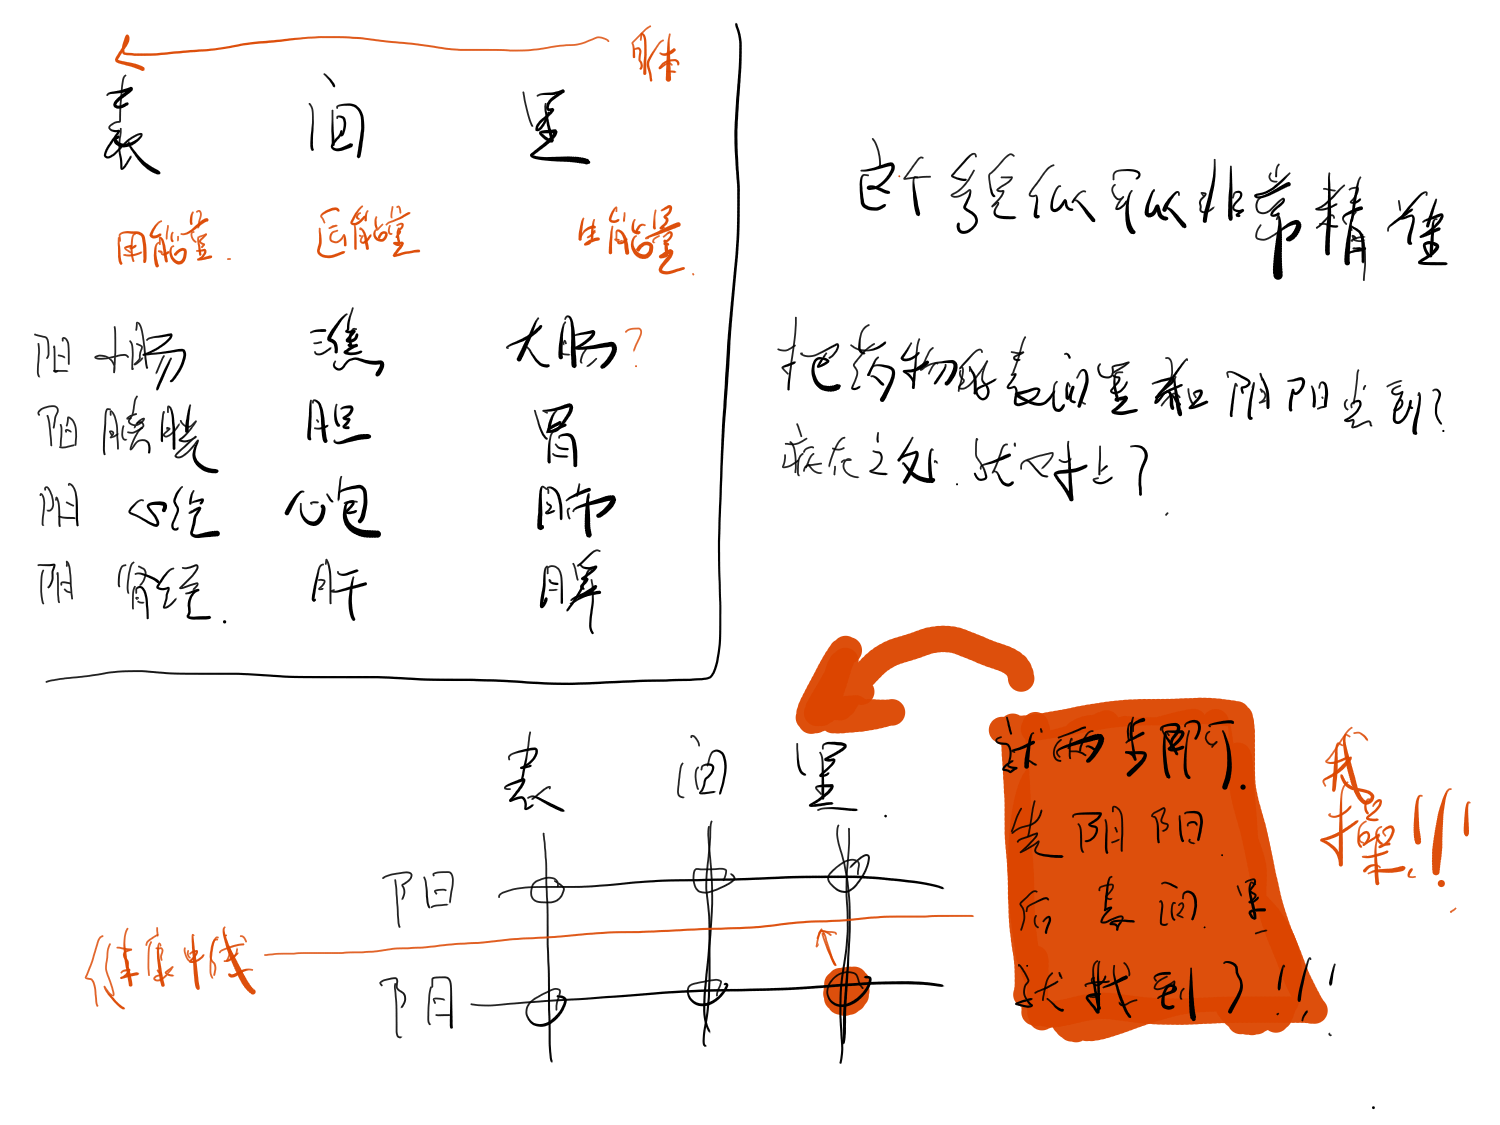 身体
表 间 里
用能量. 运能量 生能量.
阳 小肠 三焦 大肠?
阳 膀胱 胆 胃
阴 心经 心包 肺
阴 肾经. 肝 脾
这个貌似可以非常精准
把药物的表间里和阴阳点到?
病在之处.就对上了.
表 间 里.
阳
健康中线
阴
就两步即可.
先阴阳.
后表间里
就找到了!!!
我
操!!!